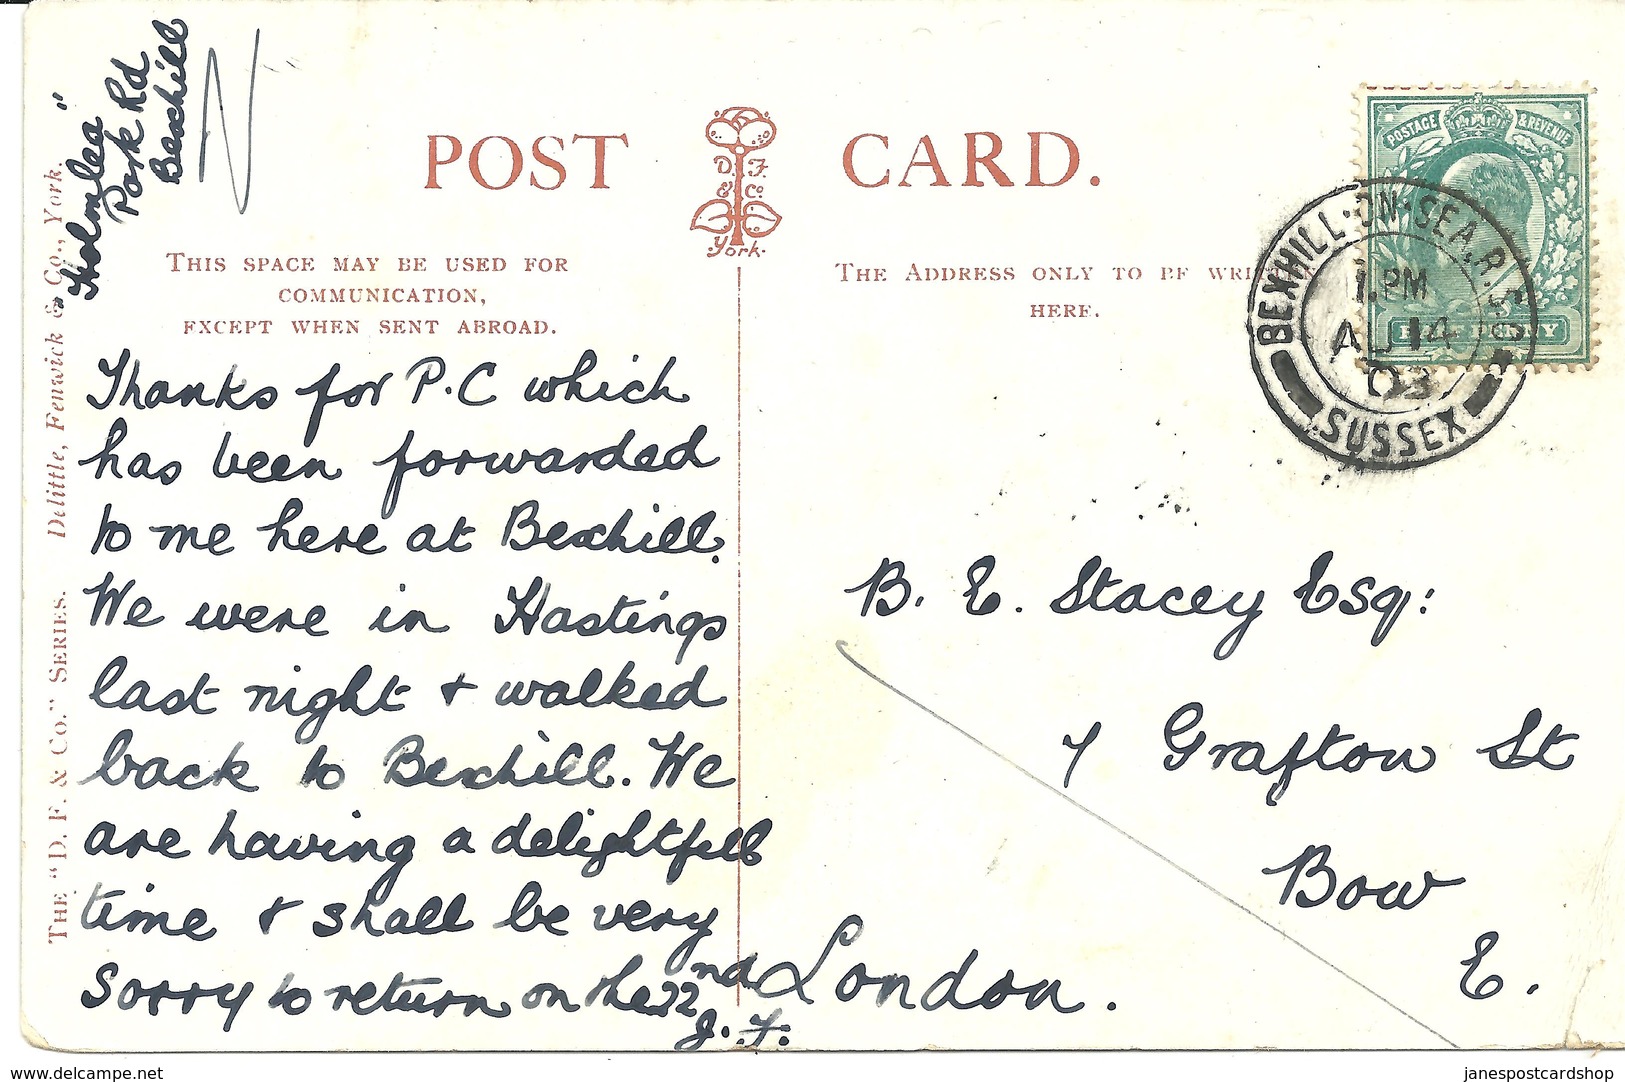 "Holmlea"
Park Rd
Bexhill
N
POST CARD.
D. F.
& Co
York.
THIS SPACE MAY BE USED FOR
COMMUNICATION,
EXCEPT WHEN SENT ABROAD.
THE ADDRESS ONLY TO BE WRITTEN
HERE.
POSTAGE & REVENUE
HALFPENNY
BEXHILL-ON-SEA, R.S.O
1. PM
AU 14
03
SUSSEX
THE "D. F. & CO." SERIES. Delittle, Fenwick & Co., York.
Thanks for P.C which
has been forwarded
to me here at Bexhill.
We were in Hastings
last night & walked
back to Bexhill. We
are having a delightfull
time & shall be very
sorry to return on the 22nd
J. F.
B. E. Stacey Esq:
7 Grafton St
Bow
London. E.
www.delcampe.net
janespostcardshop